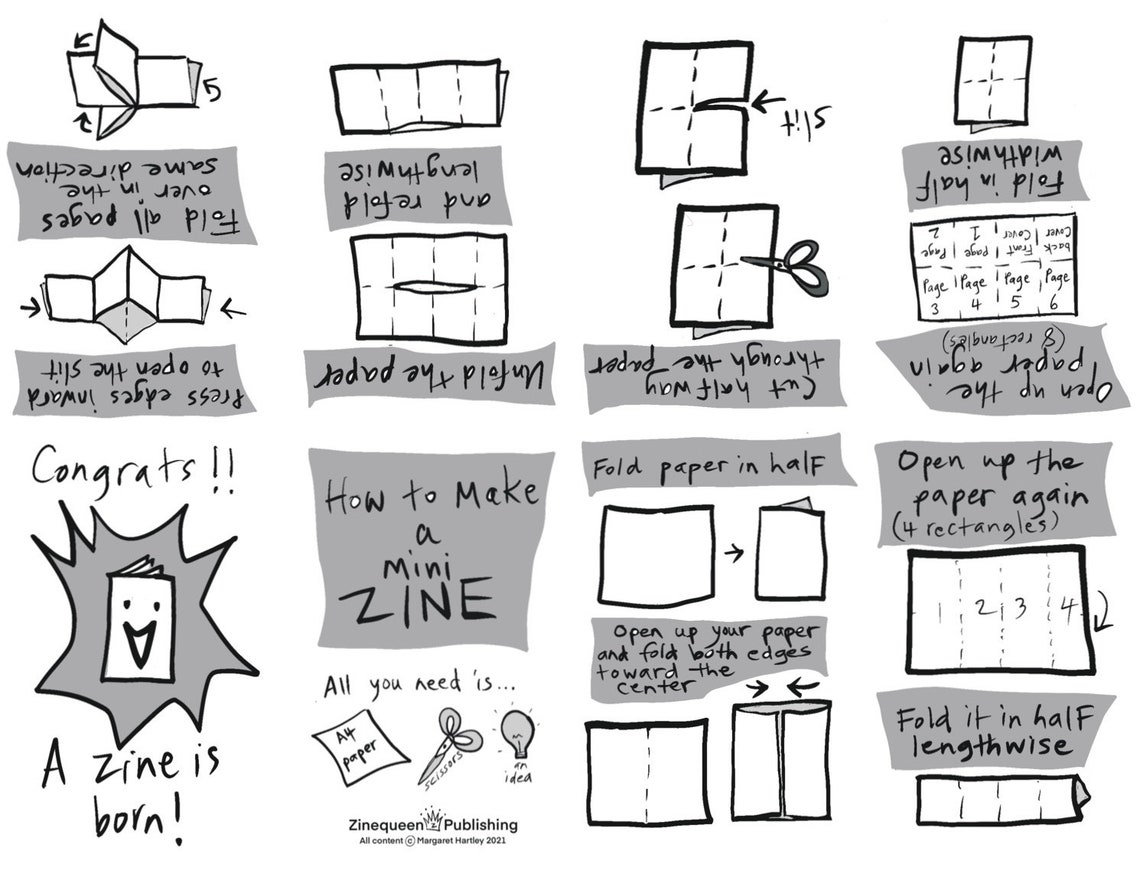 How to Make
a
mini
ZINE
All you need is...
A4
paper
scissors
an
idea
Zinequeen Publishing
All content © Margaret Hartley 2021
Fold paper in half
Open up your paper
and fold both edges
toward the
center
Open up the
paper again
(4 rectangles)
1 2 3 4
Fold it in half
lengthwise
Open up the
paper again
(8 rectangles)
back Front Page Page
Cover Cover 1 2
Page Page Page Page
3 4 5 6
Fold in half
widthwise
Cut halfway
through the paper
slit
Unfold the paper
and refold
lengthwise
Press edges inward
to open the slit
Fold all pages
over in the
same direction
Congrats!!
A zine is
born!